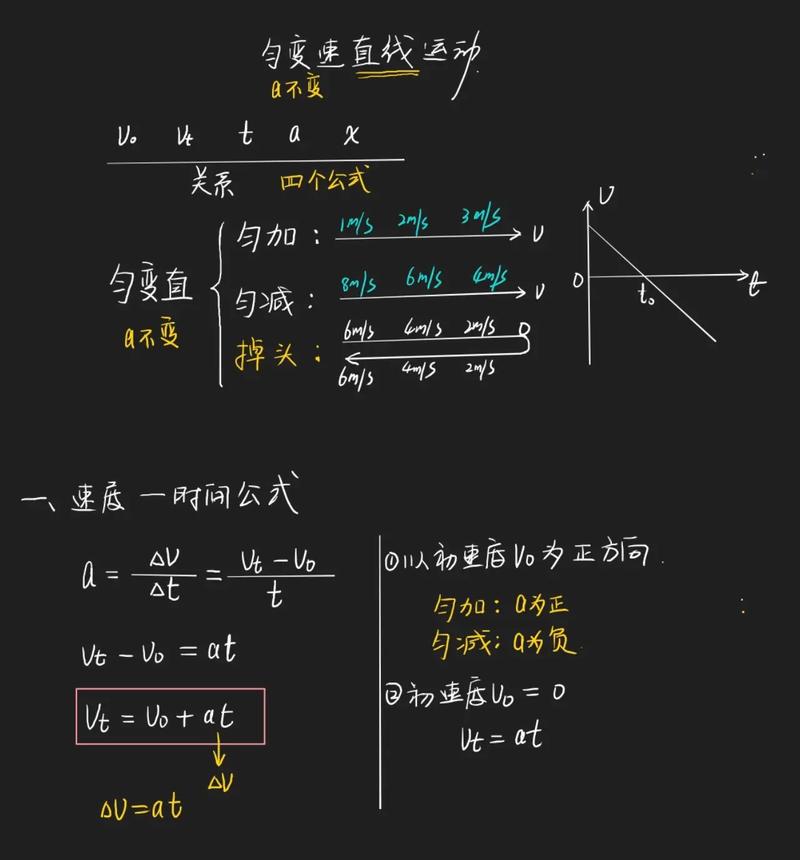 匀变速直线运动
a不变
v₀ vₜ t a x
关系 四个公式
匀变直
a不变
匀加: 1m/s 2m/s 3m/s v
匀减: 8m/s 6m/s 4m/s v
掉头: 6m/s 4m/s 2m/s 0
6m/s 4m/s 2m/s
v
0 t₀ t
一、速度—时间公式
a = Δv/Δt = (vₜ - v₀)/t
vₜ - v₀ = at
vₜ = v₀ + at
Δv
Δv = at
①以初速度v₀为正方向.
匀加: a为正
匀减: a为负
②初速度v₀ = 0
vₜ = at